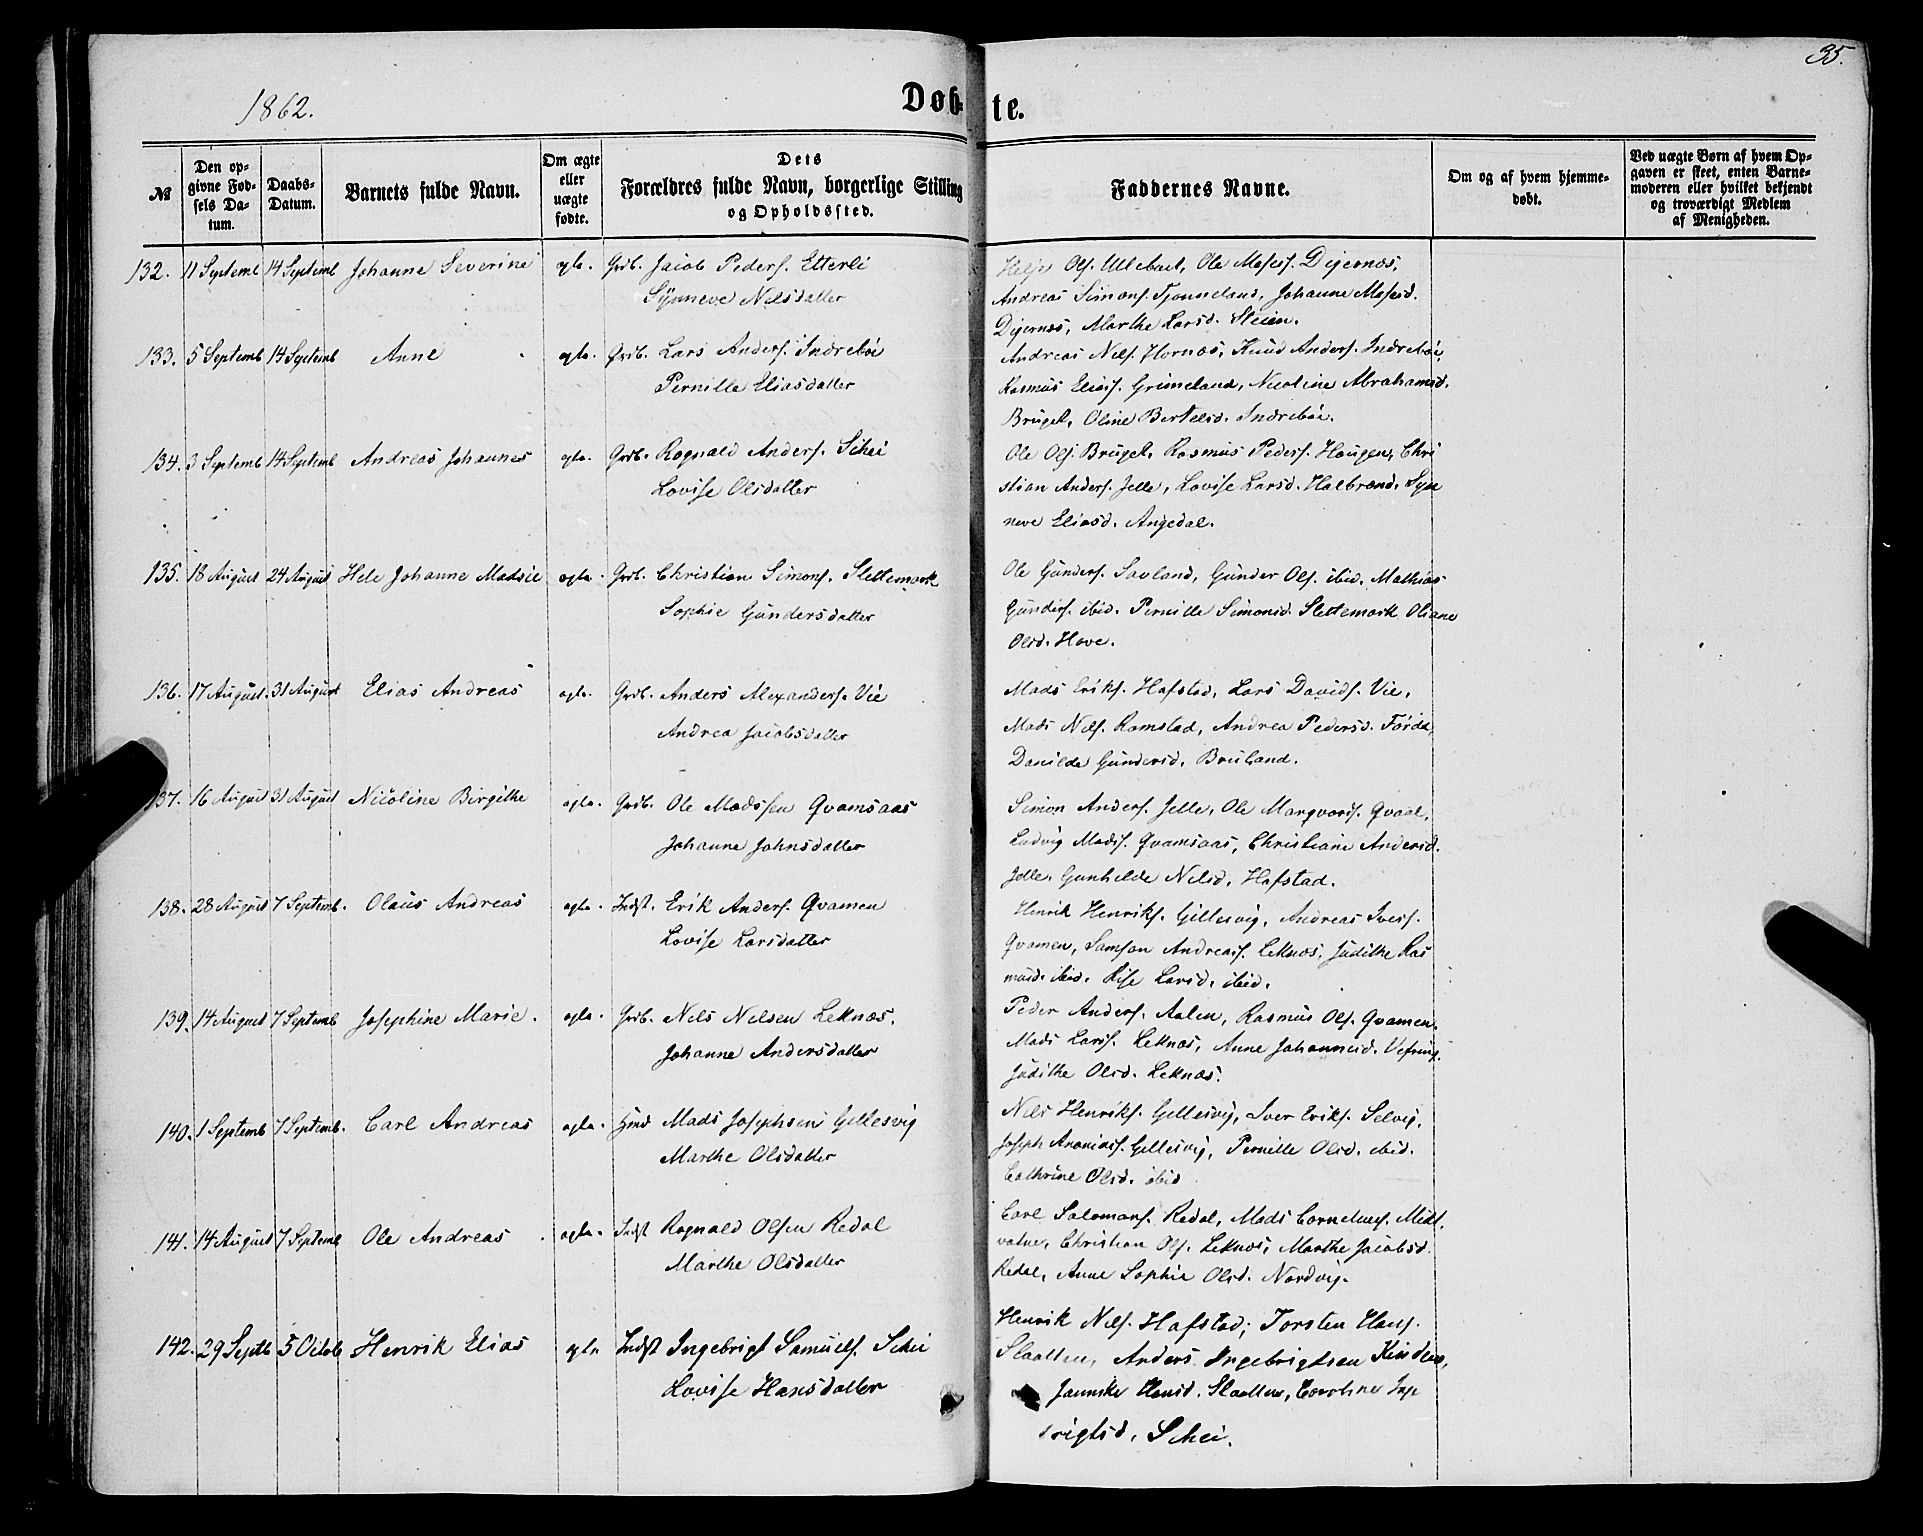 35.
1862.
Døb-
te.
№
Den opgivne Fødsels Datum.
Daabs-Datum.
Barnets fulde Navn.
Om ægte eller uægte fødte.
Dets
Forældres fulde Navn, borgerlige Stilling
og Opholdssted.
Faddernes Navne.
Om og af hvem hjemmedøbt.
Ved uægte Børn af hvem Opgaven er skeet, enten Barnemoderen eller hvilket bekjendt og troværdigt Medlem af Menigheden.
132. 11 Septemb 14 Septemb Johanne Severine ægte. Grdb. Jacob Peders. Etterli
Synneve Nelsdatter
Olf. Ullebact, Ole Moses. Digernæs,
Andreas Simons. Tjønneland, Johanne Mosesd.
Digernæs, Marthe Larsd. Steien.
133. 5 Septemb 14 Septemb Anne ægte. Grdb. Lars Anders. Indrebøe
Pernille Eliasdatter
Andreas Nels. Hornæs, Knud Anders. Indrebøe,
Rasmus Elias. Grimeland, Nicoline Abrahamsd.
Bruget, Oline Bertelsd. Indrebøe.
134. 3 Septemb 14 Septemb Andreas Johannes ægte. Grdb. Ragnald Anders. Schei
Lovise Olsdatter
Ole Ols. Bruget, Rasmus Peders. Haugen, Chri
stian Anders. Jelle, Lovise Larsd. Halbrend, Syn
neve Eliasd. Angedal.
135. 18 August 24 August Hele Johanne Madsie ægte. Grdb. Christian Simons. Slettemark
Sophie Gundersdatter
Ole Gunders. Savland, Gunder Ols. ibid. Mathias
Gunders. ibid. Pernille Simonsd. Slettemark Oliane
Olsd. Hove.
136. 17 August. 31 August Elias Andreas ægte. Grdb. Anders Alexanders. Vie
Andrea Jacobsdatter
Mads Eriks. Hafstad, Lars Davids. Vie,
Mads Nels. Ramstad, Andrea Pedersd. Førde,
Danilde Gundersd. Bruland.
137. 16 August 31 August Nicoline Birgithe ægte. Grdb. Ole Madssen Qvamsaas
Johanne Johnsdatter
Simon Anders. Jelle, Ole Marqvards. Qvaal,
Ludvig Mads. Qvamsaas, Christiane Andersd.
Jelle, Gunhilde Nelsd. Hafstad.
138. 28 August 7 Septemb. Olaus Andreas ægte. Indst. Erik Anders. Qvamen
Lovise Larsdatter
Henrik Henriks. Gillesvig, Andreas Ivers.
Qvamen, Samson Andreas. Leknæs, Judithe Ras
musd. ibid. Lise Larsd. ibid.
139. 14 August 7 Septemb Josephine Marie. ægte. Grdb. Nels Nelsen Leknæs.
Johanne Andersdatter
Peder Anders. Aalen, Rasmus Ols. Qvamen,
Mads Lars. Leknæs, Anne Johannesd. Vefring.
Judithe Olsd. Leknæs.
140. 1 Septemb 7 Septemb. Carl Andreas ægte. Mads Josephsen Gillesvig
Marthe Olsdatter
Nels Henriks. Gillesvig, Iver Eriks. Selvig,
Joseph Ananias. Gillesvig, Pernille Olsd. ibid.
Cathrine Olsd. ibid
141. 14 August 7 Septemb Ole Andreas. ægte. Indst Ragnald Olsen Redal
Marthe Olsdatter
Carl Salomons. Redal, Mads Cornelius. Midt
vatne, Christian Ols. Leknæs, Marthe Jacobsd.
Redal, Anne Sophie Olsd. Nordvig.
142. 29 Septb 5 Octob Henrik Elias ægte Indst Ingebrigt Samuels. Schei
Lovise Hansdatter
Henrik Nels. Hafstad; Torsten Hans.
Slaatten, Anders Ingebrigtsen
Jannike Hansd. Slaatten, Caroline Inge
brigtsd, Schei.